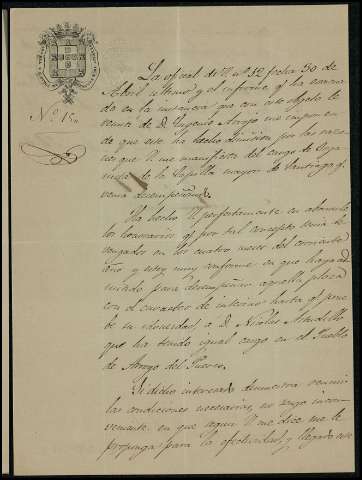 La oficial de V. nº 52 fecha 30 de
Abril ultimo y el informe q.
do en la instancia que con este objeto le
de D. Eugenio Arrojo me
do que este ha hecho dimision por las razo
nes que V. me manifiesta del cargo de Orga
nista de la Capilla mayor de Santiago q.
venia desempeñando.
Ha hecho V. perfectamente en abonarle
los honorarios q. por tal concepto tenia de
vengados en los cuatro meses del corriente
año y estoy muy conforme en que haya ad
mitido para desempeñar aquella plaza
con el caracter de interino hasta q. prue
be su idoneidad, a D. Nicolas Astudillo
que ha tenido igual cargo en el Pueblo
de Arroyo del Puerco.
Si dicho interesado demuestra reunir
las condiciones necesarias, no tengo incon
veniente en que aquí V. me dice me le
proponga para la efectividad, y llegado ese
Nº 15